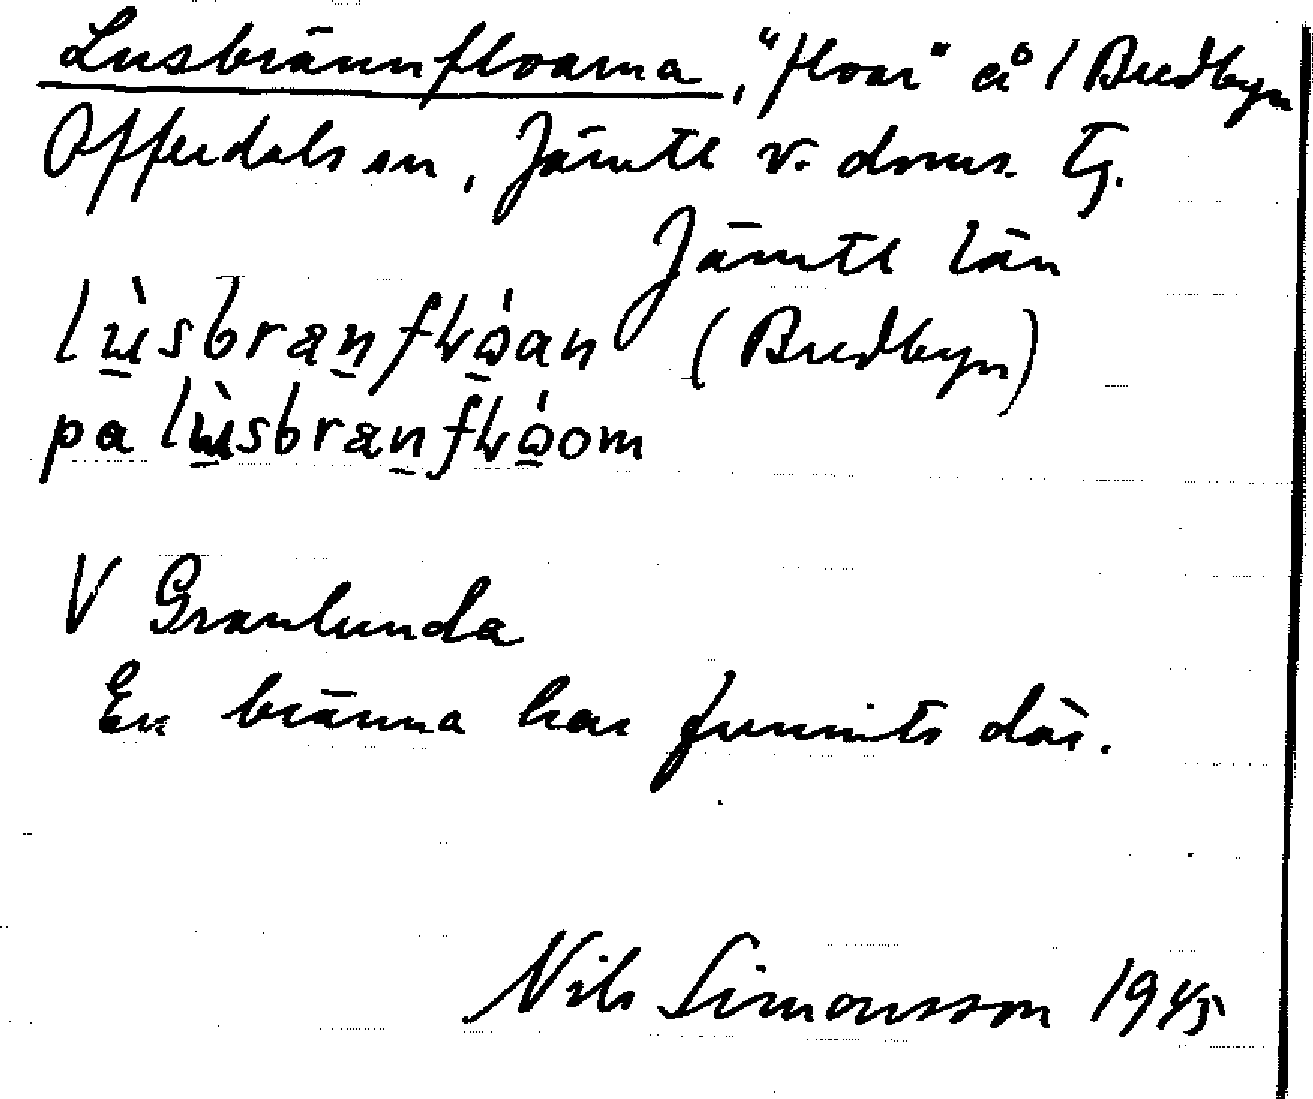 Lusbrännfloarna, "floar" å 1 Bredbyn
Offerdals sn, Jämtl v. doms. Tg.
Jämtl län
lùsbranflɷ́an (Bredbyn)
pa lùsbranflɷ́om
V Granlunda
En bränna har funnits där.
Nils Simonsson 1945